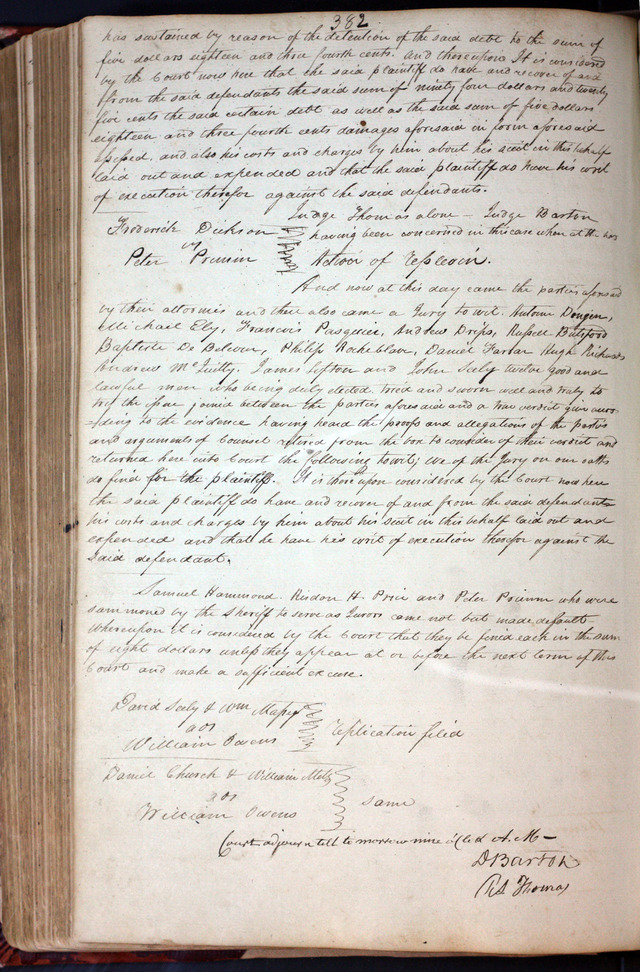 382
has sustained by reason of the detention of the said debt to the sum of
five dollars eighteen and three fourth cents. And thereupon It is considered
by the Court now here that the said plaintiff do have and recover of and
from the said defendants the said sum of ninety four dollars and twenty
five cents the said certain debt as well as the said sum of five dollars
eighteen and three fourth cents damages aforesaid in form aforesaid
assessed, and also his costs and charges by him about his suit in this behalf
laid out and expended and that the said plaintiff do have his writ
of execution therefor against the said defendants.
Judge Thomas alone – Judge Barton
Frederick Dickson
having been concerned in this case when at the bar
vs
Peter Primm
Action of Replevin.
And now at this day came the parties aforesaid
by their attornies and then also came a Jury to wit. Antoine Dangen,
Michael Ely, Francois Pasquier, Andrew Drips, Russell Botsford
Baptiste De Belcour, Philip Rocheblave, Daniel Farrar Hugh Richards
Andrew McQuilty. James Sefton and John Seely twelve good and
lawful men who being duly elected tried and sworn well and truly to
try the issue joined between the parties aforesaid and a true verdict give accor
-ding to the evidence having heard the proofs and allegations of the parties
and arguments of Counsel retired from the box to consider of their verdict and
returned here into Court the following towit; We of the Jury on our oaths
do find for the plaintiff. It is thereupon considered by the Court now here
the said plaintiff do have and recover of and from the said defendants
his costs and charges by him about his suit in this behalf laid out and
expended and that he have his writ of execution therefor against the
said defendant.
Samuel Hammond. Risdon H. Price and Peter Primm who were
summoned by the Sheriff to serve as Jurors came not but made default–
Whereupon it is considered by the Court that they be fined each in the sum
of eight dollars unless they appear at or before the next term of this
Court and make a sufficient excuse.
David Seely & Wm Massey
ads
William Owens
Replication filed
Daniel Church & William Metz
ads
William Owens
same
Court adjourn till to morrow nine o'Clock A.M –
D Barton
R S Thomas